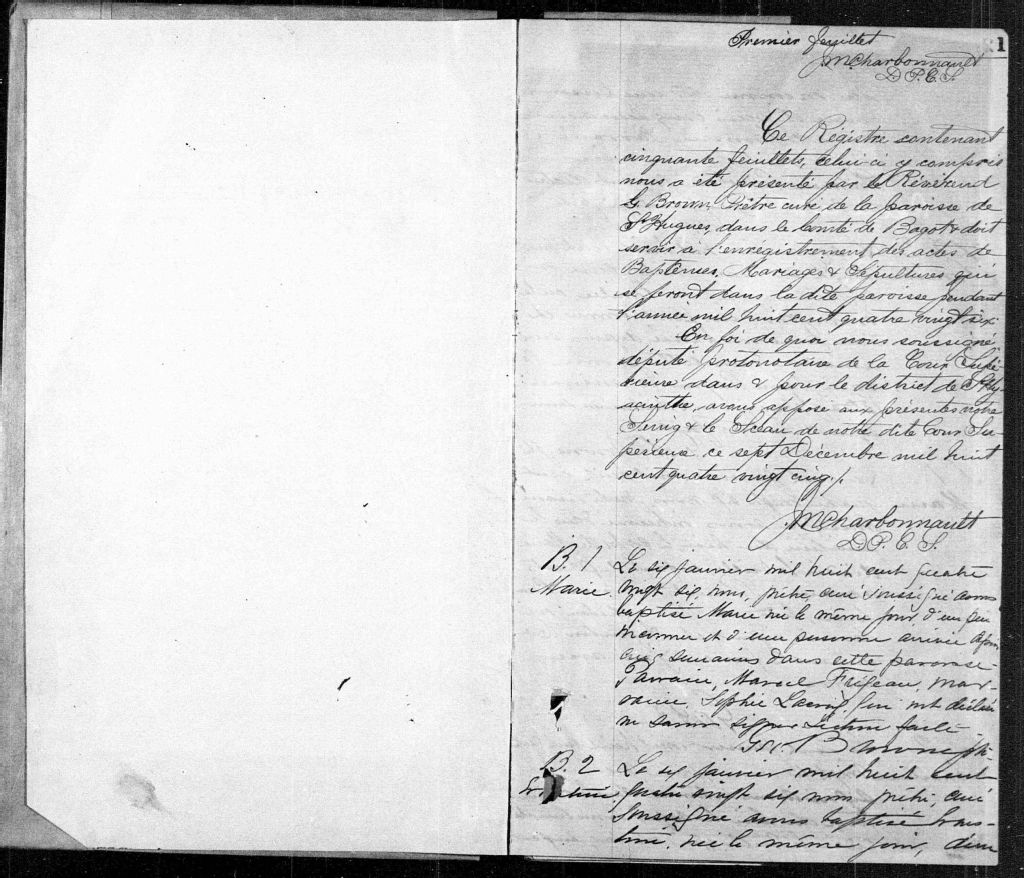 Premier feuillet
1
JMCharbonnault
D.P.C.S.
Ce Régistre contenant
cinquante feuillets, celui-ci y compris
nous a été présenté par le Révérend
G. Brown, Prêtre curé de la paroisse de
St Hugues, dans le Comté de Bagot & doit
servir à l'enrégistrement des actes de
Baptêmes, Mariages & Sépultures qui
se feront dans la dite paroisse pendant
l'année mil huit cent quatre vingt six
En foi de quoi nous soussigné
député protonotaire de la Cour Supé
rieure dans & pour le district de St Hy
acinthe avons apposé aux présentes notre
Seing & le Sceau de notre dite Cour Su-
périeure ce sept Décembre mil huit
cent quatre vingt cinq/.
JMCharbonnault
D.P.C.S.
B. 1
Marie
Le six janvier mil huit cent quatre
vingt six, nous, prêtre, curé soussigné avons
baptisé Marie née le même jour d'un père
inconnu et d'une personne arrivée depuis
cinq semaines dans cette paroisse-
Parrain, Marcel Frégeau, mar-
raine, Sophie qui ont déclaré
ne savoir signer Lecture faite-
Brown Ptr.
B. 2
Le six janvier mil huit cent
quatre vingt six nous prêtre, curé
soussigné avons baptisé
née le même jour, d'un